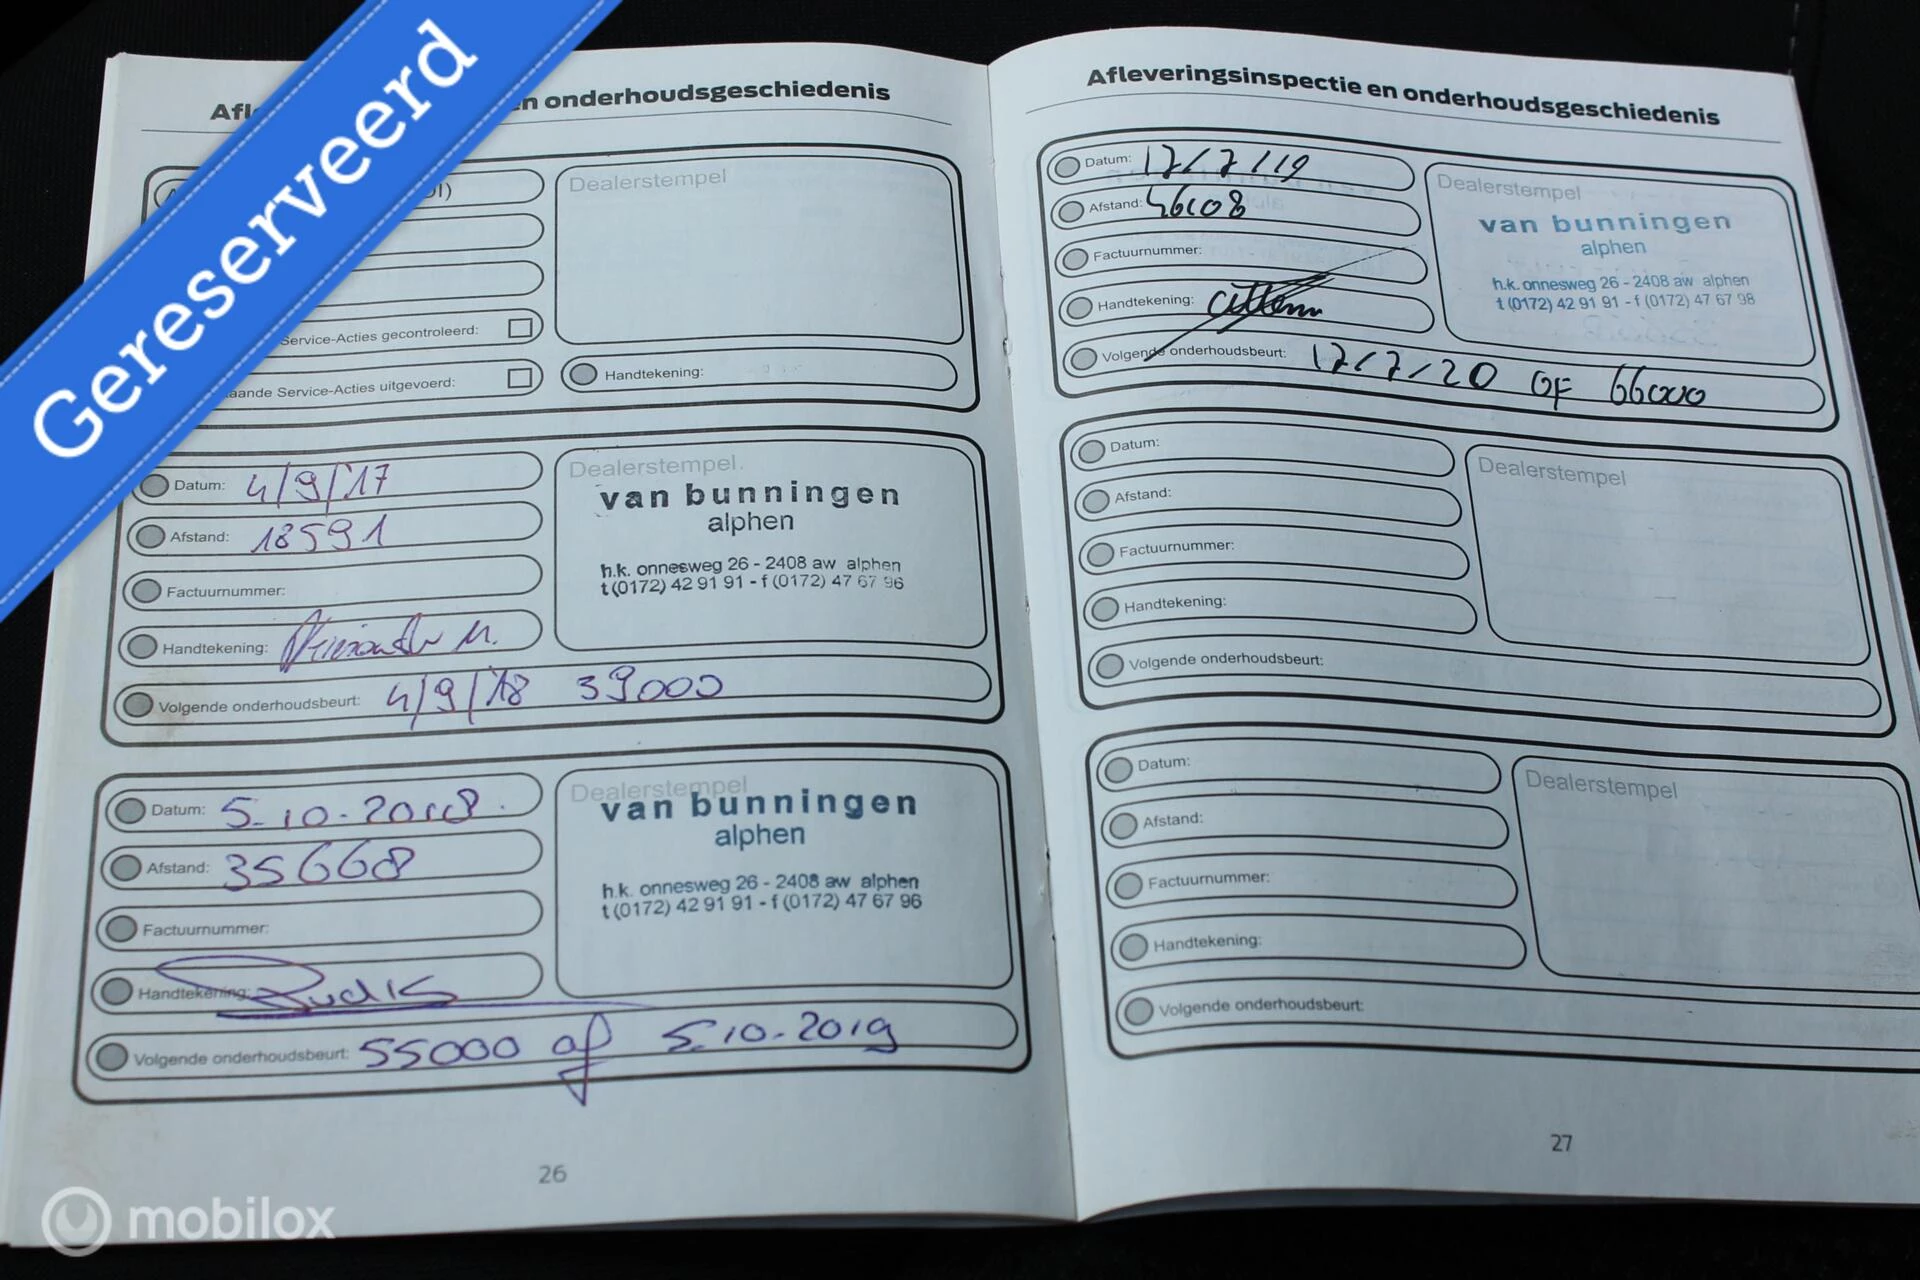 Gereserveerd
en onderhoudsgeschiedenis
Dealerstempel
Service-Acties gecontroleerd:
Service-Acties uitgevoerd:
Handtekening:
Datum: 4/9/'17
Afstand: 18591
Factuurnummer:
Handtekening:
Volgende onderhoudsbeurt: 4/9/'18 39000
Dealerstempel
van bunningen
alphen
h.k. onnesweg 26 - 2408 aw alphen
t (0172) 42 91 91 - f (0172) 47 67 96
Datum: 5-10-2018.
Afstand: 35668
Factuurnummer:
Handtekening:
Volgende onderhoudsbeurt: 55000 of 5-10-2019
Dealerstempel
van bunningen
alphen
h.k. onnesweg 26 - 2408 aw alphen
t (0172) 42 91 91 - f (0172) 47 67 96
26
Afleveringsinspectie en onderhoudsgeschiedenis
Datum: 17/7/19
Afstand:
Factuurnummer:
Handtekening:
Volgende onderhoudsbeurt: 17/7/20 OF 66000
Dealerstempel
van bunningen
alphen
h.k. onnesweg 26 - 2408 aw alphen
t (0172) 42 91 91 - f (0172) 47 67 98
Datum:
Afstand:
Factuurnummer:
Handtekening:
Volgende onderhoudsbeurt:
Dealerstempel
Datum:
Afstand:
Factuurnummer:
Handtekening:
Volgende onderhoudsbeurt:
Dealerstempel
27
mobilox